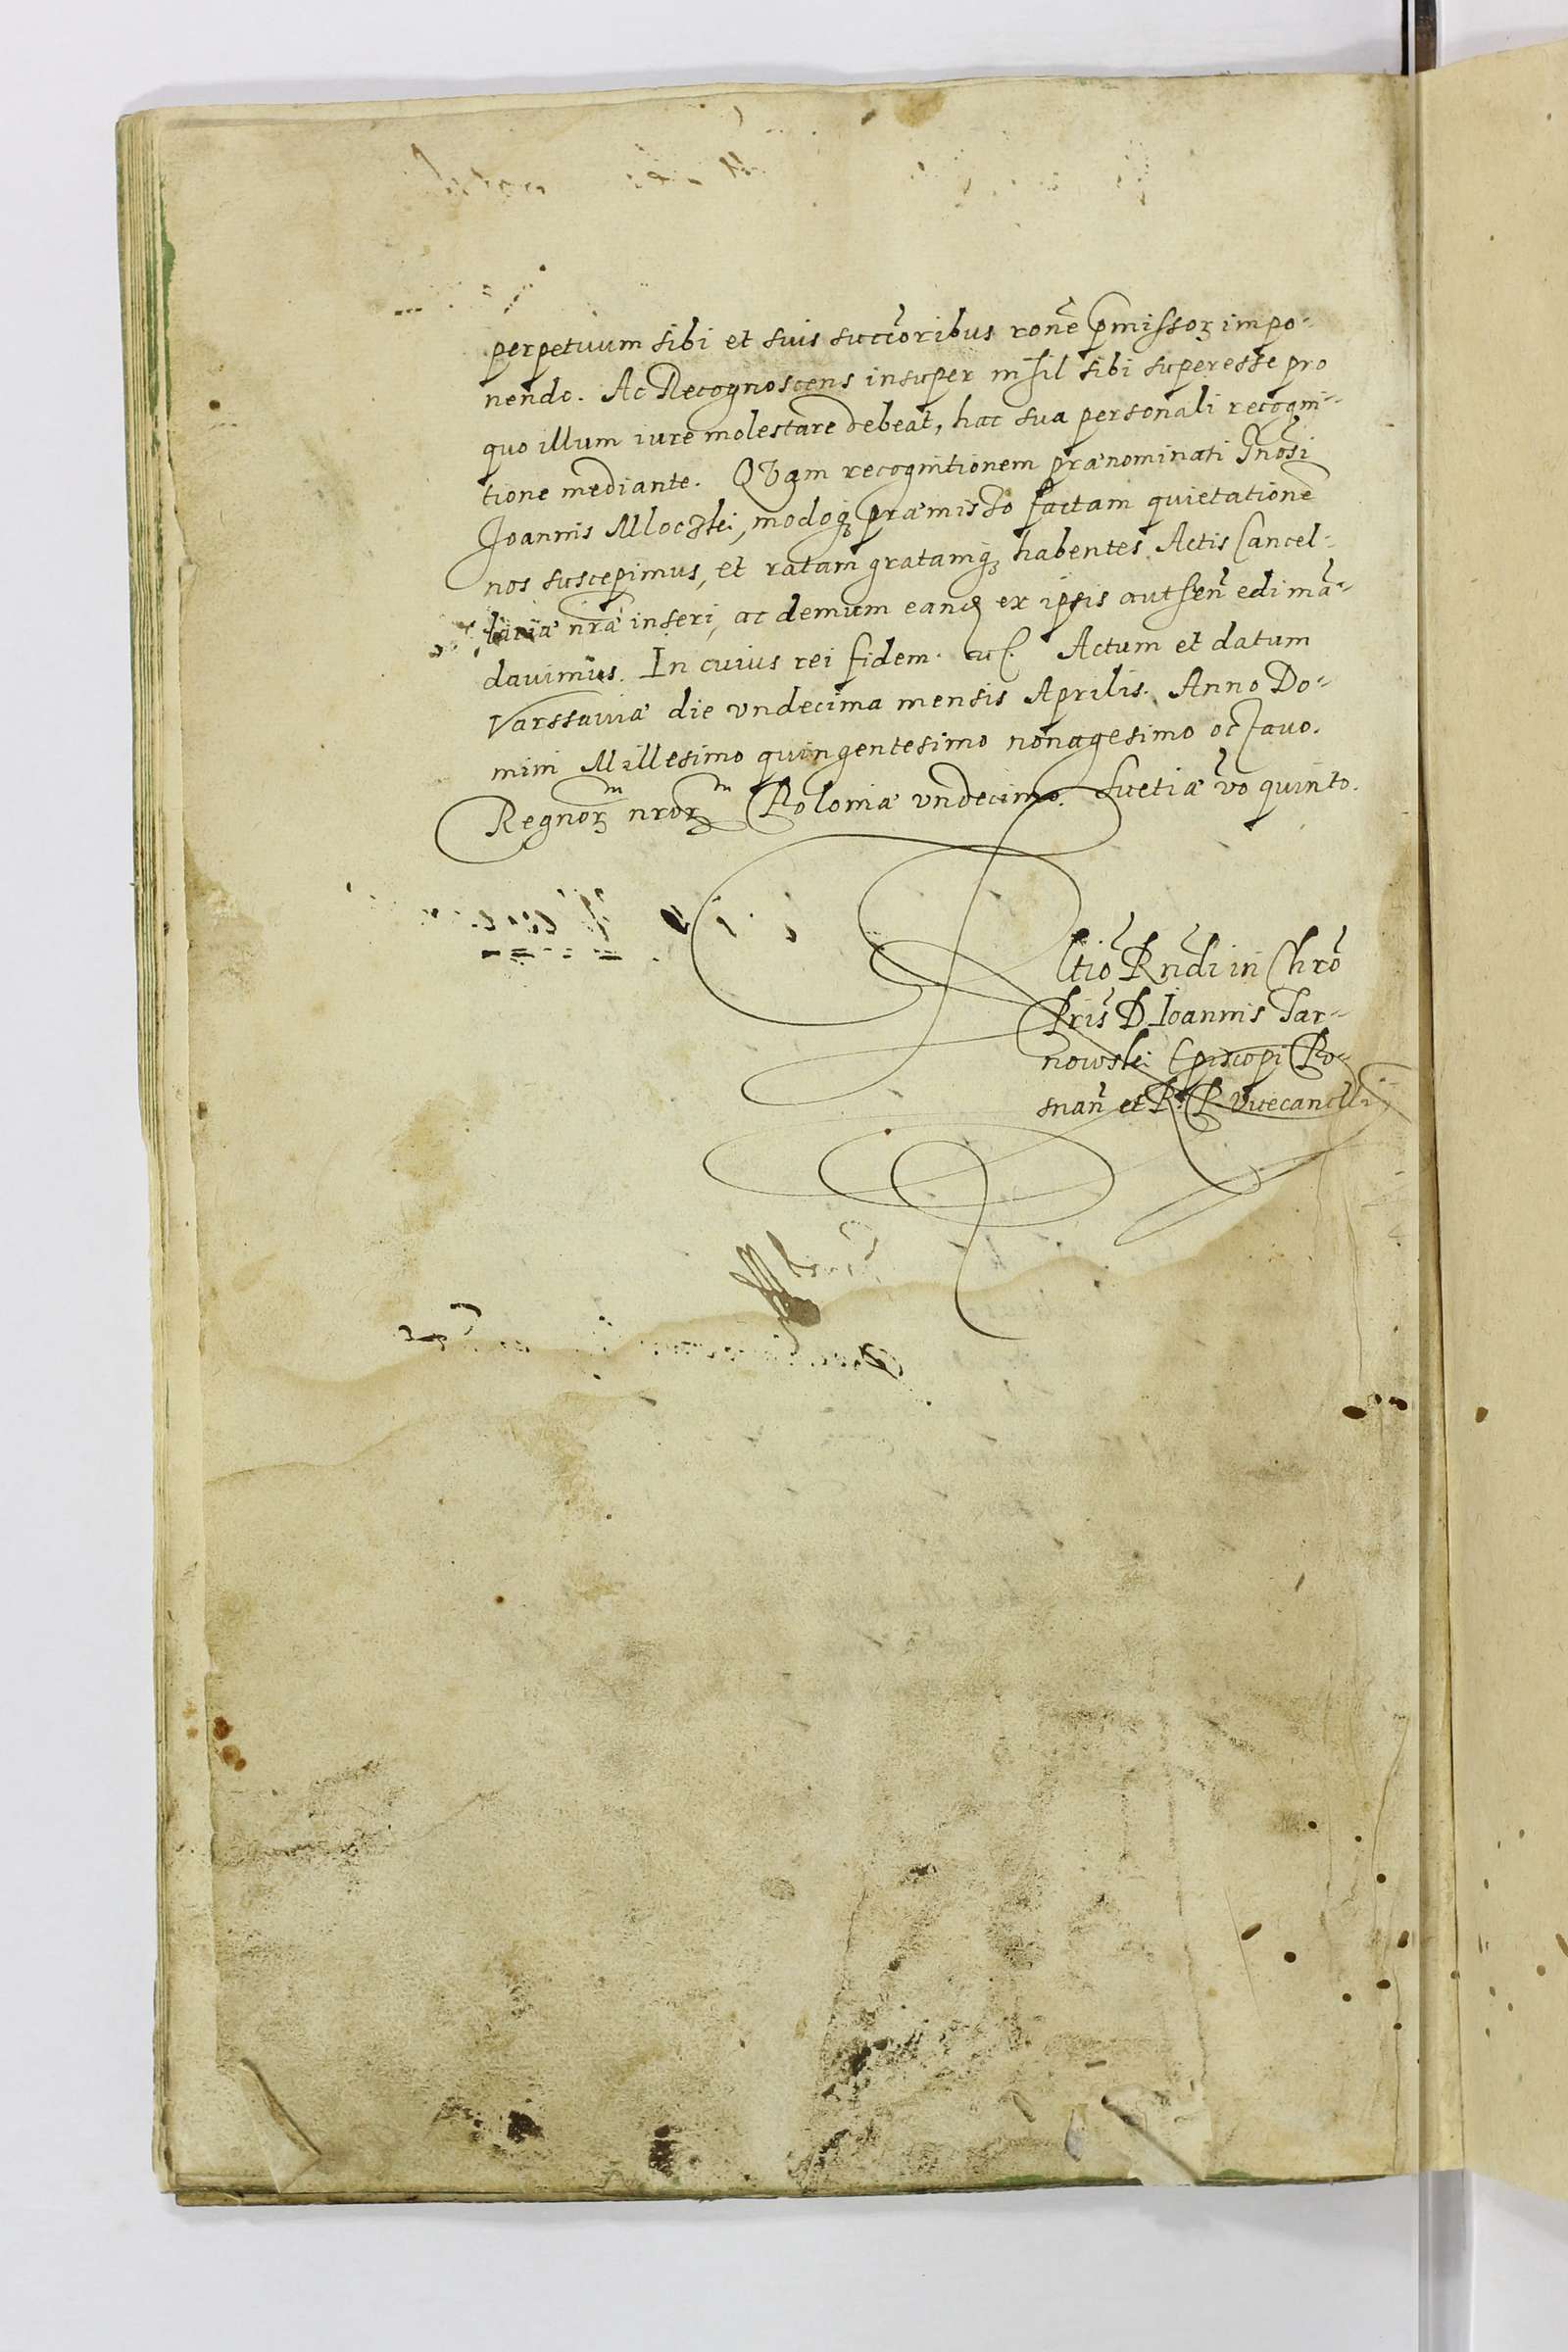 perpetuum sibi et suis succoribus rone pmissoꝝ impo-
nendo. Ac Recognoscens insuper nihil sibi superesse pro
quo illum iure molestare debeat, hac sua personali recogni-
tione mediante. Quam recognitionem prænominati Gnosi
Joannis Mloczki, modoqꝫ præmisso factam quietatione
nos suscepimus, et ratam gratamqꝫ habentes Actis Cancel-
lariæ nræ inseri, ac demum eand ex ipsis authen edi mã-
davimus. In cuius rei fidem. Actum et datum
Varssaviæ die vndecima mensis Aprilis. Anno Do-
mini Millesimo quingentesimo nonagesimo octavo.
Regnoꝝ nroꝝ Poloniæ vndecimo. Suetiæ vo quinto.
Rndi in Chro
Pris D Joannis Tar-
nowski Episcopi Po-
snan et R. P. Vicecancellrij